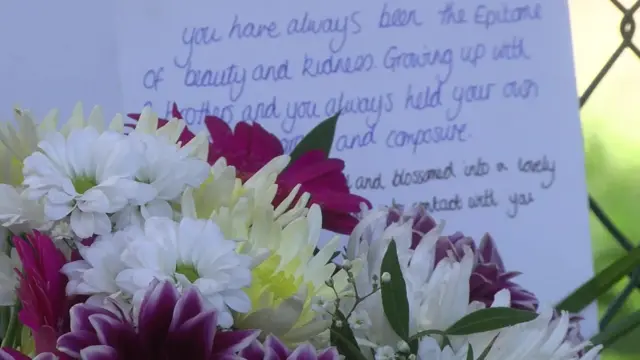 you have always been the Epitome
of beauty and kindness. Growing up with
brothers and you always held your own
and composure.
and blossomed into a lovely
contact with you